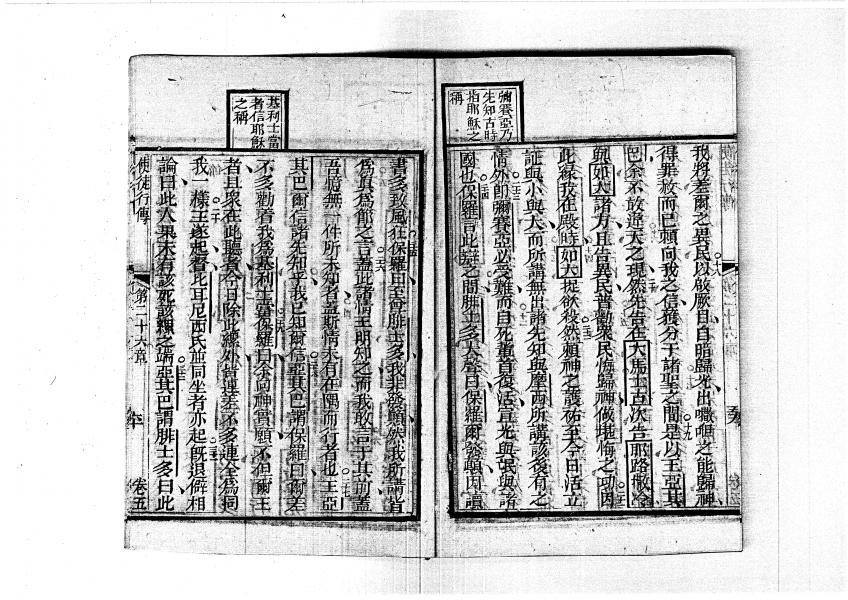 彌賽亞乃
先知古時
指耶穌之
稱
我將差爾之異民以啟厥目自暗歸光出嗽咀之能歸神
得罪赦而已賴向我之信獲分于諸聖之間是以王亞其
巴余不敢逆天之現然先告在大馬士古次告耶路撒冷
與如大諸方且告異民普勸衆民悔歸神做堪悔之功因
此緣我在殿時如大提欲殺然賴神之護祐至今日活立
証與小與大而所講無出諸先知與摩西所講該後有之
情外卽彌賽亞必受難而自死重首復活宣光與民與諸
國也保羅言此辯之間腓士多大聲曰保羅爾發顛因讀
基利士當
者信耶穌
之稱
書多致風狂保羅曰否會腓士多我非發顛然我所講皆
爲眞爲節之言蓋此諸情王明知之而我敢言于其前蓋
吾臆無一件所未知者蓋斯情未有在隅而行者也王亞
其巴爾信諸先知乎我已知爾信亞其巴謂保羅曰爾差
不多勸着我爲基利士當保羅曰余向神實願不但爾王
者且衆在此聽者今日除此縲外皆連差不多連全爲同
我一樣王遂起督比耳尼西氏並同坐者亦起旣退僻相
論曰此人果未有該死該縲之端亞其巴謂腓士多曰此
使徒行傳
第二十六章
卷五